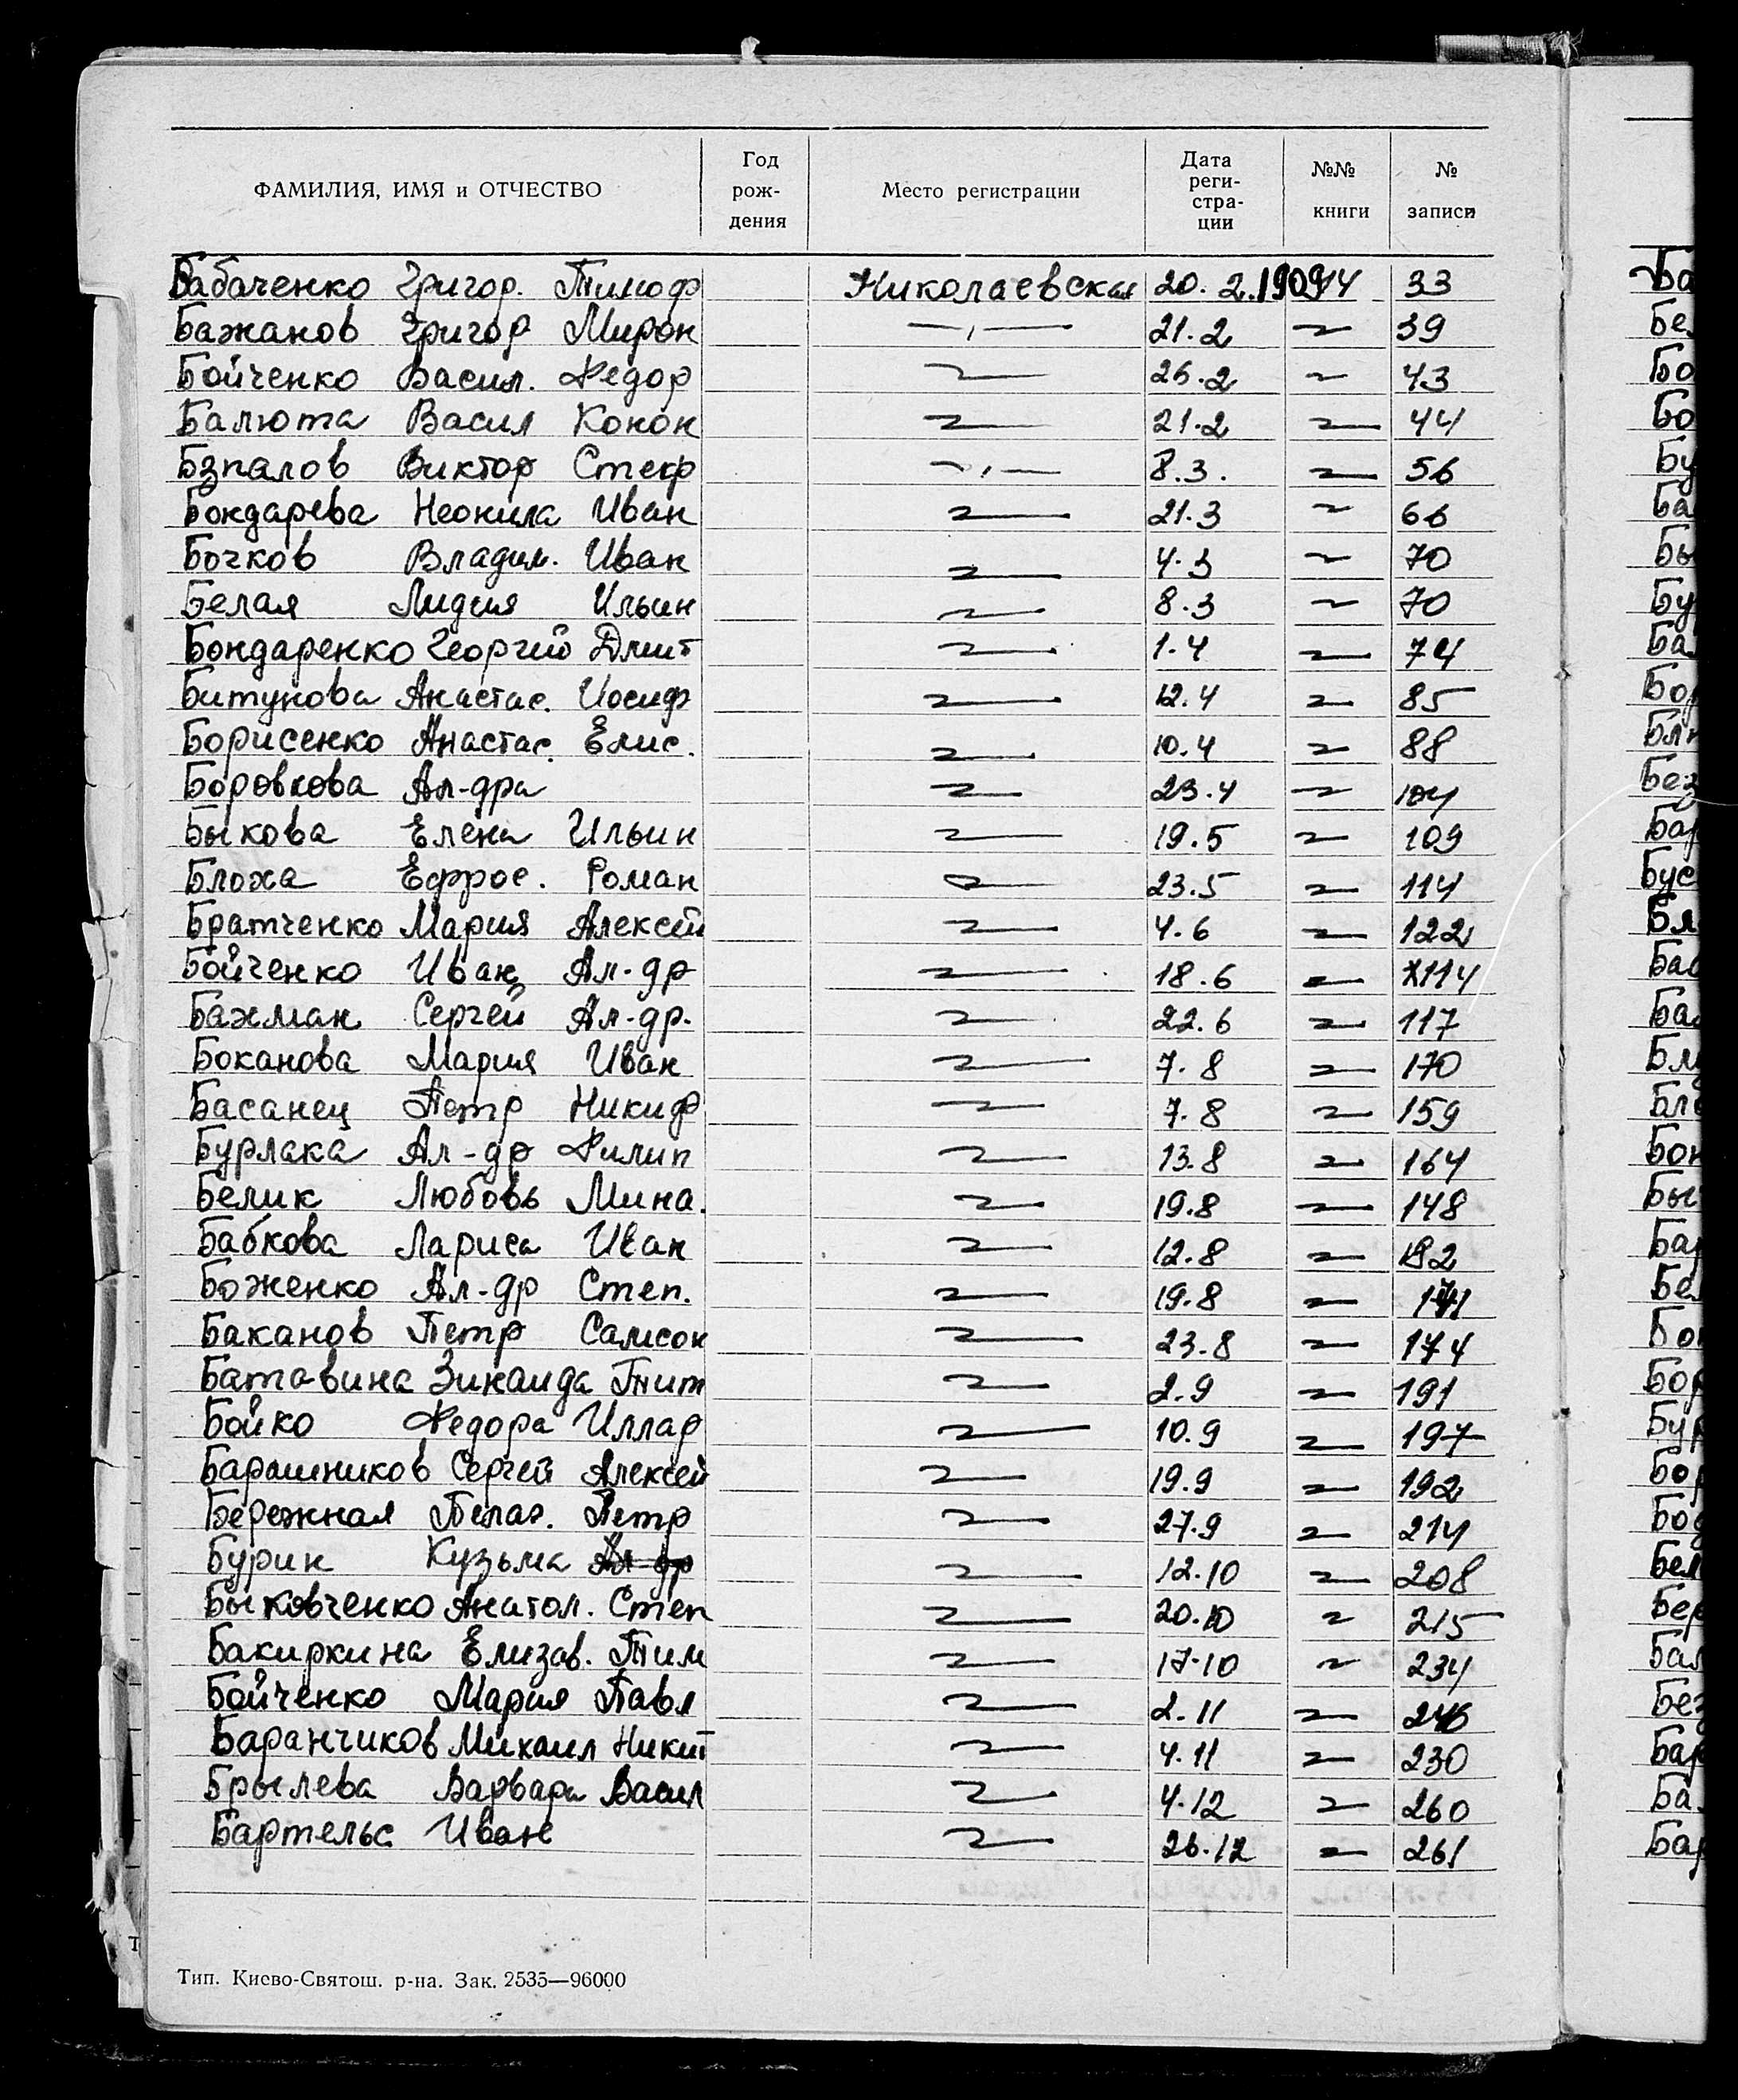 ФАМИЛИЯ, ИМЯ и ОТЧЕСТВО Год рождения Место регистрации Дата регистрации №№ книги № записи
Бабаченко Григор. Тимоф Николаевская 20.2.1909 14 33
Бажанов Григор Мирон —"— 21.2 —"— 39
Бойченко Васил. Федор —"— 26.2 —"— 43
Балюта Васил Конон —"— 21.2 —"— 44
Бзпалов Виктор Стеф —"— 8.3. —"— 56
Бондарева Неонила Иван —"— 21.3 —"— 66
Бочков Владим. Иван —"— 4.3 —"— 70
Белая Лидия Ильин —"— 8.3 —"— 70
Бондаренко Георгий Дмит —"— 1.4 —"— 74
Битунова Анастас. Иосиф —"— 12.4 —"— 85
Борисенко Анастас. Елис. —"— 10.4 —"— 88
Боровкова Ал-дра —"— 23.4 —"— 104
Быкова Елена Ильин —"— 19.5 —"— 109
Блоха Ефрос. Роман —"— 23.5 —"— 114
Братченко Мария Алексей —"— 4.6 —"— 122
Бойченко Иван Ал-др —"— 18.6 —"— 114
Бахман Сергей Ал-др. —"— 22.6 —"— 117
Боканова Мария Иван —"— 7.8 —"— 170
Басанец Петр Никиф —"— 7.8 —"— 159
Бурлака Ал-др Филип —"— 13.8 —"— 164
Белик Любовь Мина. —"— 19.8 —"— 148
Бабкова Лариса Иван —"— 12.8 —"— 182
Боженко Ал-др Степ. —"— 19.8 —"—
Баканов Петр Самсон —"— 23.8 —"— 174
Батавина Зинаида Тит —"— 2.9 —"— 191
Бойко Федора Иллар —"— 10.9 —"— 197
Барашников Сергей Алексей —"— 19.9 —"— 192
Бережная Пелаг. Петр —"— 27.9 —"— 214
Бурин Кузьма Ал-др —"— 12.10 —"— 208
Быковченко Анатол. Степ —"— 20.10 —"— 215
Бакиркина Елизав. Тим —"— 17.10 —"— 234
Бойченко Мария Павл —"— 2.11 —"— 246
Баранчиков Михаил Никит —"— 4.11 —"— 230
Брылева Варвара Васил —"— 4.12 —"— 260
Бартельс Иван —"— 26.12 —"— 261
Тип. Киево-Святош. р-на. Зак. 2535—96000